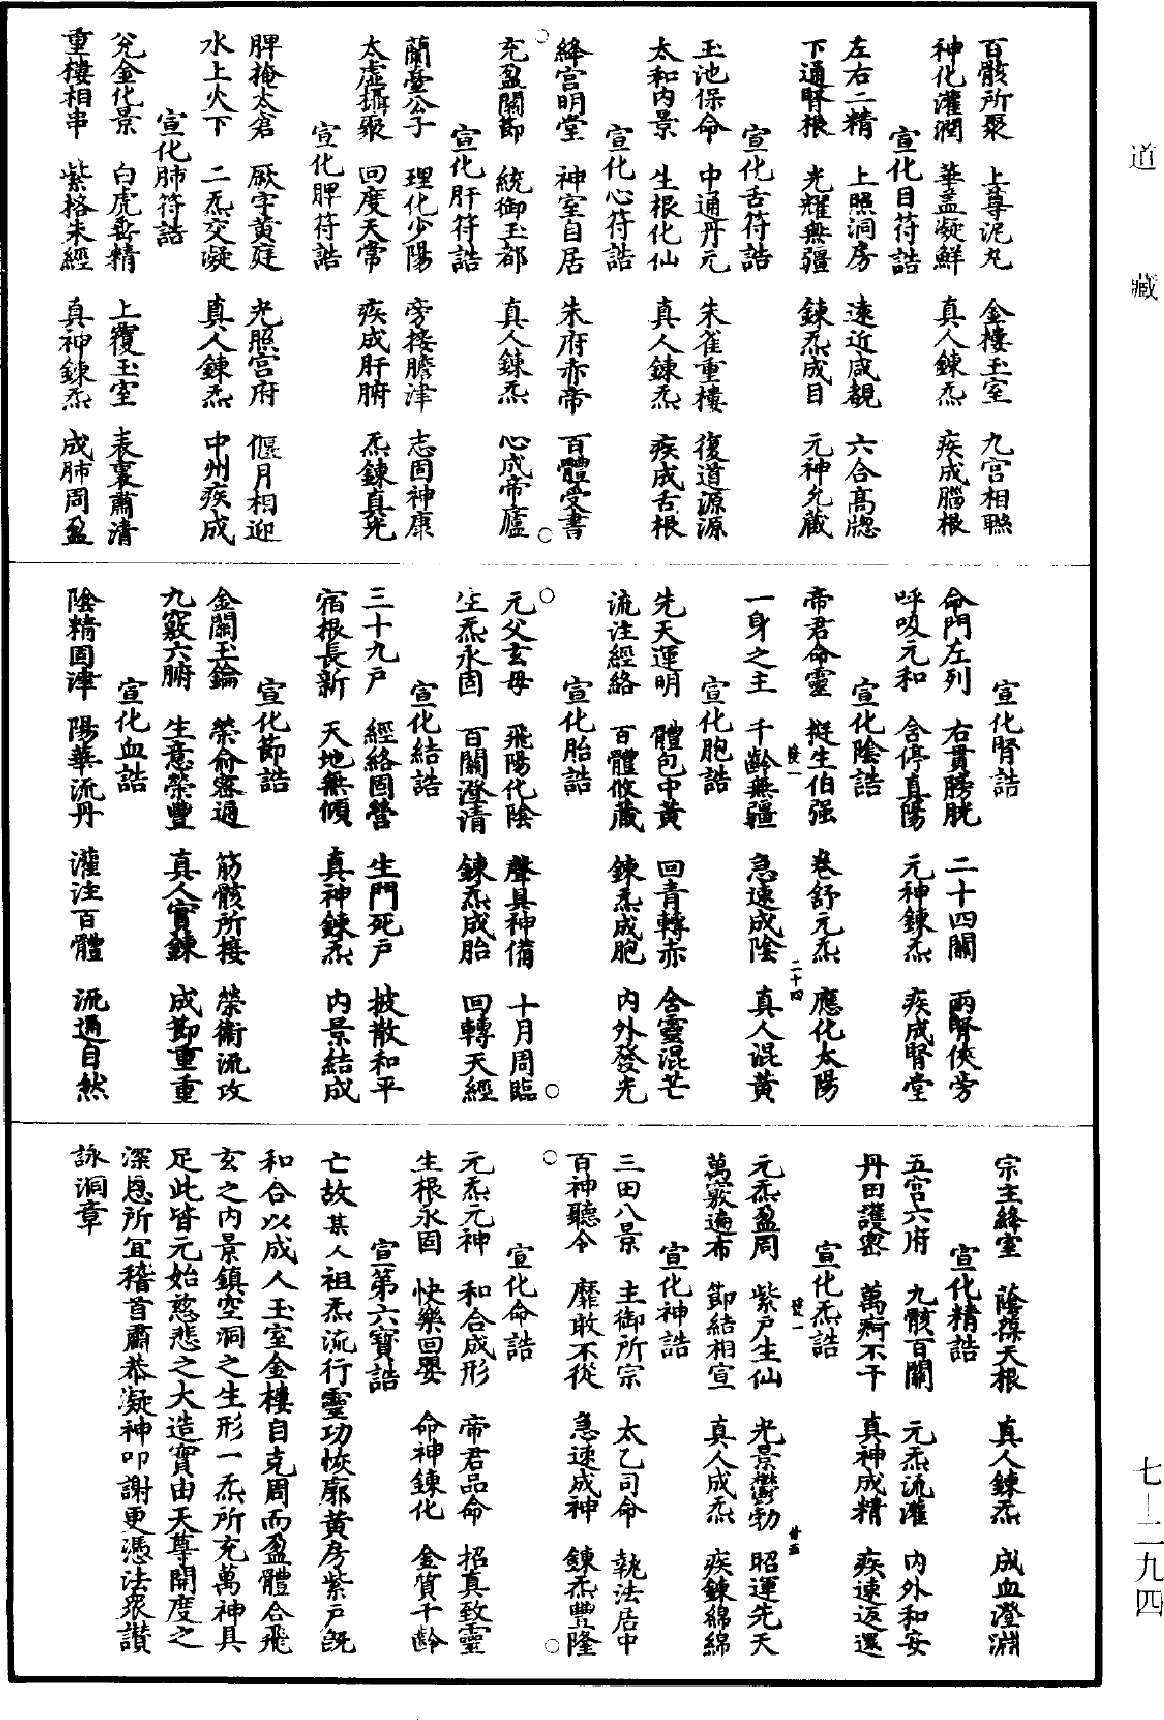 道藏
七—二九四
百骸所聚　上尊泥丸　金樓玉室　九宮相聯
神化灌潤　華蓋凝鮮　真人鍊炁　疾成腦根
宣化目符誥
左右二精　上照洞房　遠近咸覩　六合高牎
下通腎根　光耀無疆　鍊炁成目　元神允藏
宣化舌符誥
玉池保命　中通丹元　朱雀重樓　復道源源
太和內景　生根化仙　真人鍊炁　疾成舌根
宣化心符誥
絳宮明堂　神室自居　朱府赤帝　百體受書
充盈關節　統御玉都　真人鍊炁　心成帝廬
宣化肝符誥
蘭臺公子　理化少陽　旁接膽津　志固神康
太虛攝聚　回度天常　疾成肝腑　炁鍊真光
宣化脾符誥
脾掩太倉　厥字黃庭　光照宮府　偃月相迎
水上火下　二炁交凝　真人鍊炁　中州疾成
宣化肺符誥
兌金化景　白虎嚥精　上覆玉室　表裏肅清
重樓相串　紫格朱經　真神鍊炁　成肺周盈
宣化腎誥
命門左列　右貫膀胱　二十四關　兩腎俠旁
呼吸元和　含停真陽　元神鍊炁　疾成腎堂
宣化陰誥
帝君命靈　挺生伯强　卷舒元炁　應化太陽
一身之主　千齡無疆　急速成陰　真人混黃
宣化胞誥
先天運明　體包中黃　回青轉赤　含靈混芒
流注經絡　百體攸藏　鍊炁成胞　內外發光
宣化胎誥
元父玄母　飛陽化陰　聲具神備　十月周臨
生炁永固　百關澄清　鍊炁成胎　回轉天經
宣化結誥
三十九戶　經絡固營　生門死戶　披散和平
宿根長新　天地無傾　真神鍊炁　內景結成
宣化節誥
金關玉鑰　榮俞密通　筋骸所接　榮衛流攻
九竅六腑　生意榮豐　真人實鍊　成節重重
宣化血誥
陰精固津　陽華流丹　灌注百體　流通自然
宗主絳室　蔭葆天根　真人鍊炁　成血澄淵
宣化精誥
五宮六府　九骸百關　元炁流灌　內外和安
丹田護密　萬痾不干　真神成精　疾速返還
宣化炁誥
元炁盈周　紫戶生仙　光景鬱勃　昭運先天
萬竅遍布　節結相宣　真人成炁　疾鍊綿綿
宣化神誥
三田八景　主御所宗　太乙司命　執法居中
百神聽令　靡敢不從　急速成神　鍊炁豐隆
宣化命誥
元炁元神　和合成形　帝君品命　招真致靈
生根永固　快樂回嬰　命神鍊化　金質千齡
宣第六寶誥
亡故某人祖炁流行靈功恢廓黃房紫戶既
和合以成人玉室金樓自克周而盈體合飛
玄之內景鎮空洞之生形一炁所充萬神具
足此皆元始慈悲之大造實由天尊開度之
深恩所宜稽首肅恭凝神叩謝更憑法衆讃
詠洞章